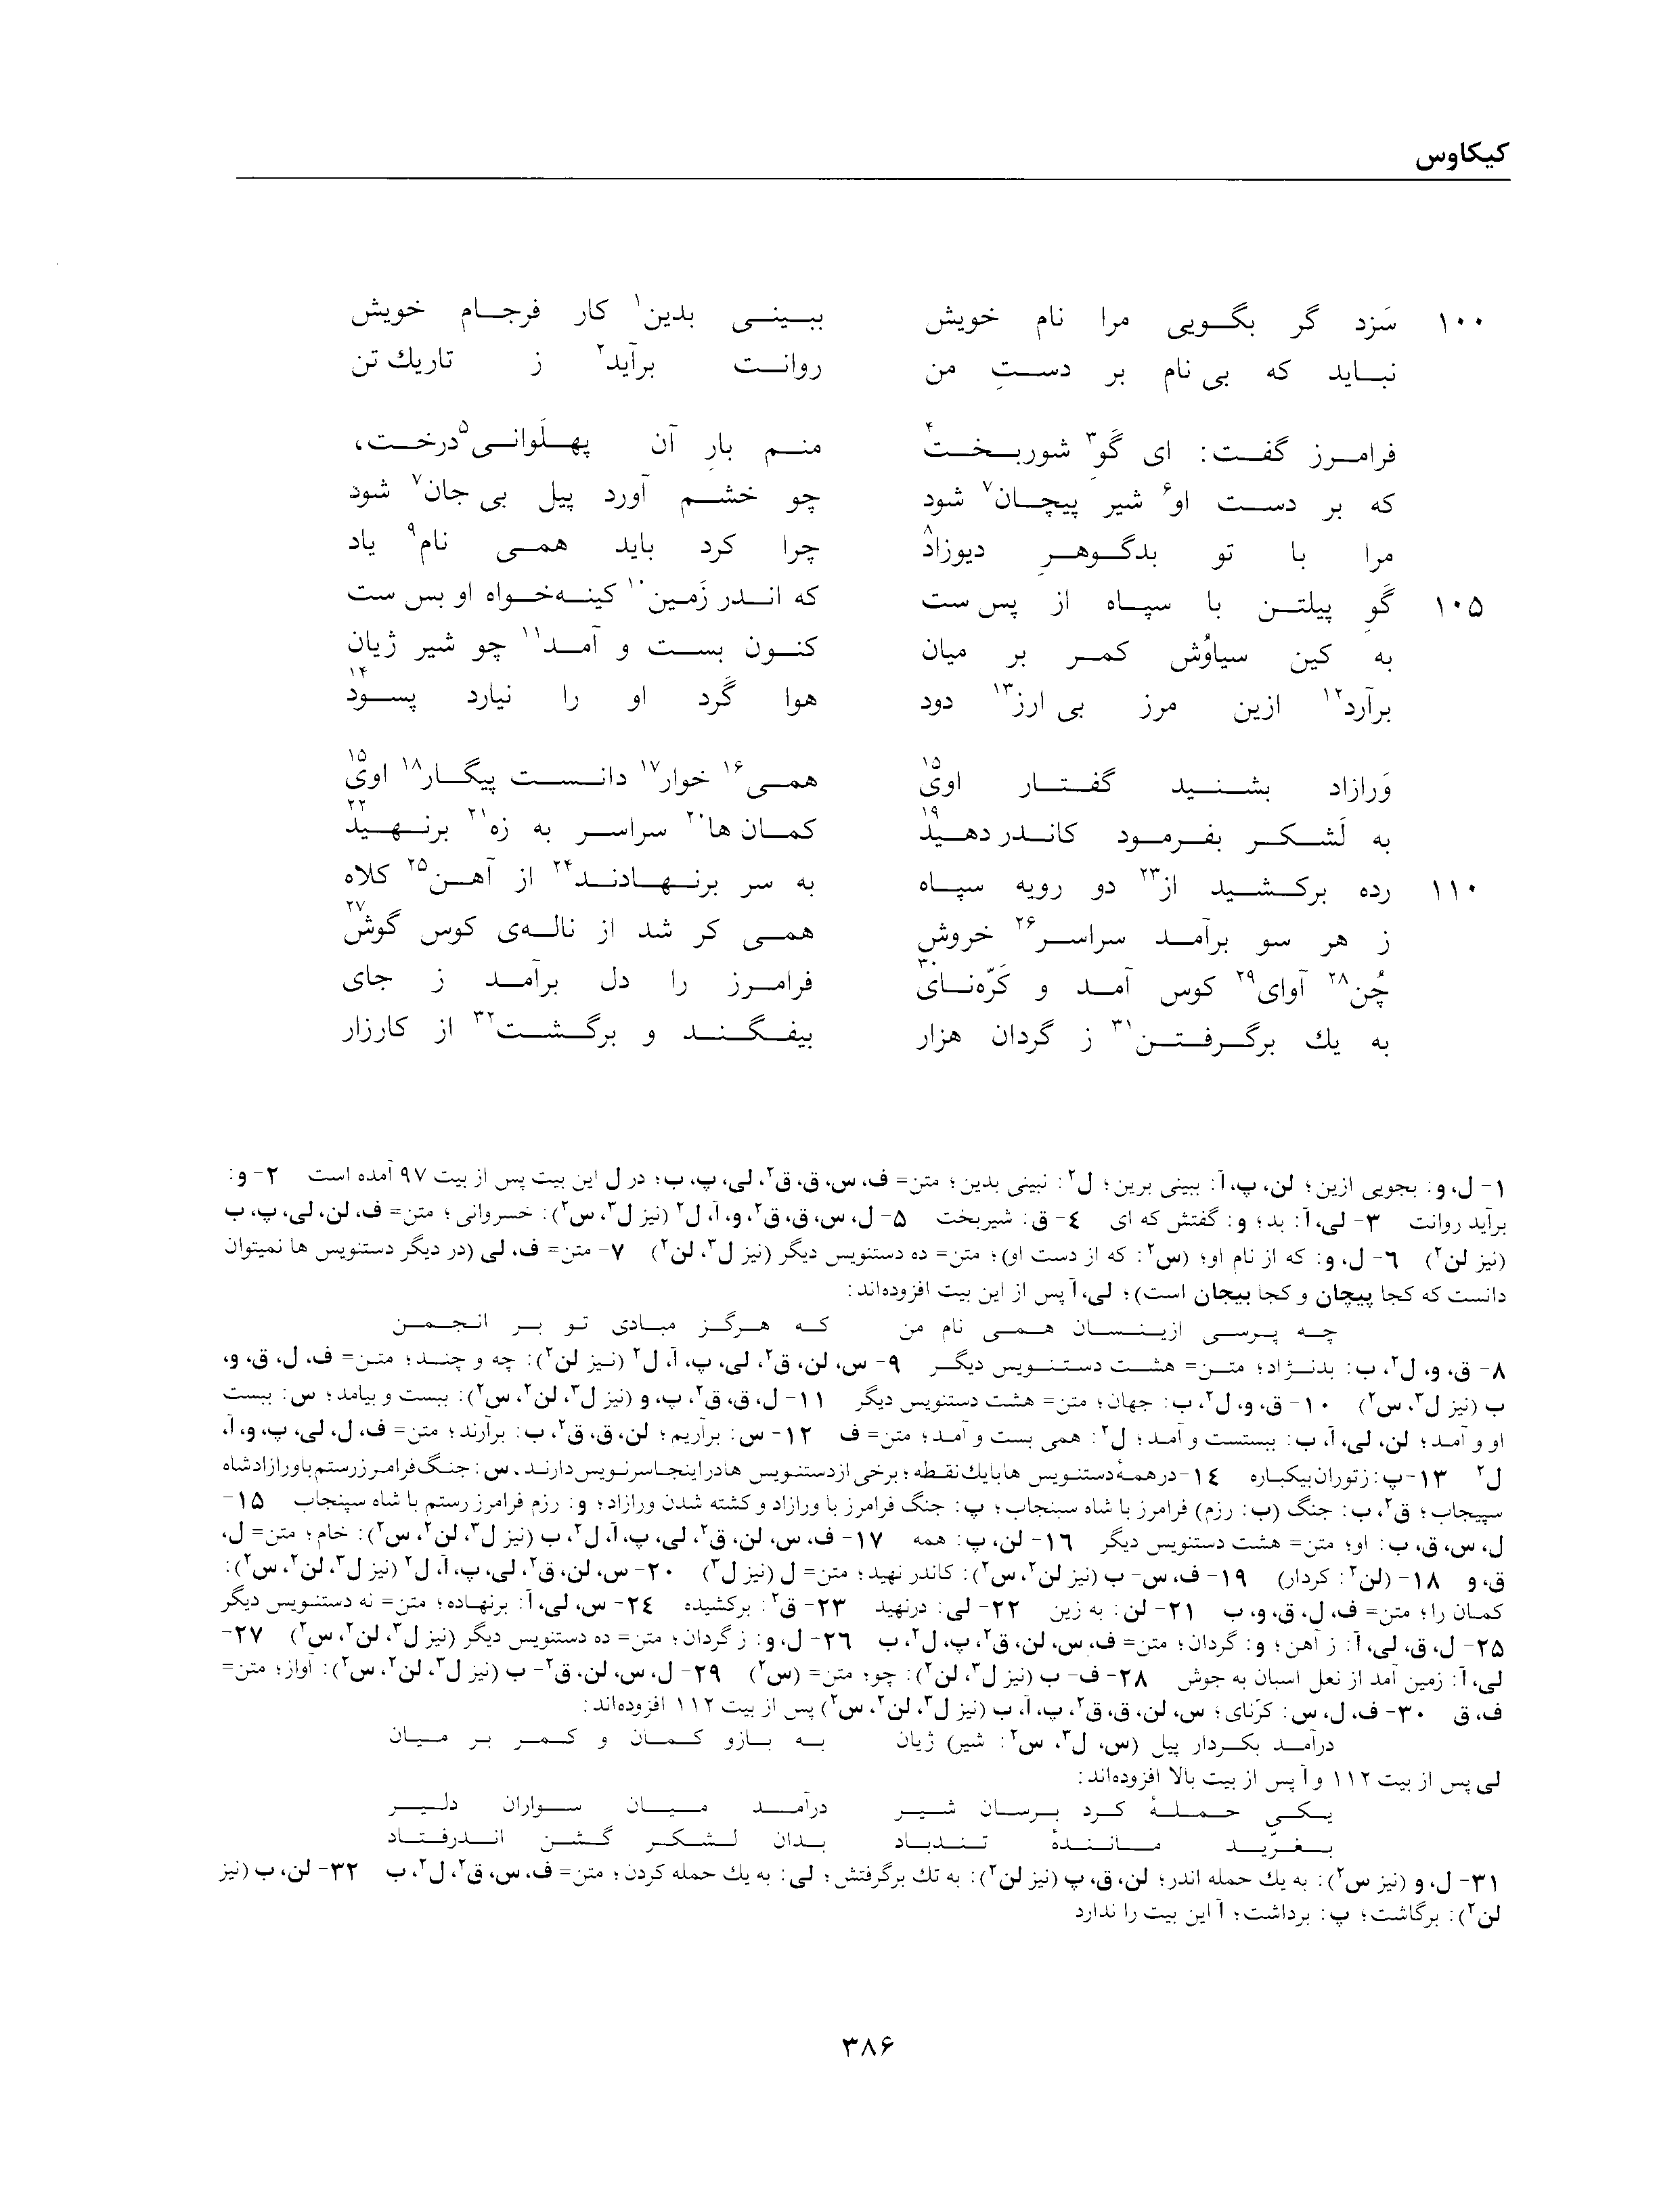 کیکاوس
۱۰۰ سَزد گر بگویی مرا نام خویش ببینی بدین۱ کار فرجام خویش
نباید که بی نام بر دستِ من روانت برآید۲ ز تاریك تن
فرامرز گفت: ای گَوِ۳ شوربخت۴ منم بارِ آن پهلَوانی۵ درخت،
که بر دست او۶ شیر پیچان۷ شود چو خشم آورد پیل بی جان۷ شود
مرا با تو بدگوهرِ دیوزاد۸ چرا کرد باید همی نام۹ یاد
۱۰۵ گَوِ پیلتن با سپاه از پس ست که اندر زَمین۱۰ کینه‌خواه او بس ست
به کین سیاوُش کمر بر میان کنون بست و آمد۱۱ چو شیر ژیان
برآرد۱۲ ازین مرز بی ارز۱۳ دود هوا گَرد او را نیارد پسود۱۴
وَرازاد بشنید گفتار اوی۱۵ همی۱۶ خوار۱۷ دانست پیگار۱۸ اوی۱۵
به لَشکر بفرمود کاندر دهید۱۹ کمان ها۲۰ سراسر به زه۲۱ برنهید۲۲
۱۱۰ رده برکشید از۲۳ دو رویه سپاه به سر برنهادند۲۴ از آهن۲۵ کلاه
ز هر سو برآمد سراسر۲۶ خروش همی کر شد از ناله‌ی کوس گوش۲۷
چُن۲۸ آوای۲۹ کوس آمد و کَرّه‌نای۳۰ فرامرز را دل برآمد ز جای
به یك برگرفتن۳۱ ز گردان هزار بیفگند و برگشت۳۲ از کارزار
۱- ل، و: بجویی ازین؛ لن، پ، آ: ببینی برین؛ ل۲: نبینی بدین؛ متن= ف، س، ق، ق۲، لی، پ، ب؛ در ل این بیت پس از بیت ۹۷ آمده است ۲- و:
برآید روانت ۳- لی، آ: بد؛ و: گفتش که ای ٤- ق: شیربخت ۵- ل، س، ق، ق۲، و، آ، ل۲ (نیز ل۳، س۲): خسروانی؛ متن= ف، لن، لی، پ، ب
(نیز لن۲) ٦- ل، و: که از نام او؛ (س۲: که از دست او)؛ متن= ده دستنویس دیگر (نیز ل۳، لن۲) ۷- متن= ف، لی (در دیگر دستنویس ها نمیتوان
دانست که کجا پیچان و کجا بیجان است)؛ لی، آ پس از این بیت افزوده‌اند:
چه پرسی ازینسان همی نام من که هرگز مبادی تو بر انجمن
۸- ق، و، ل۲، ب: بدنژاد؛ متن= هشت دستنویس دیگر ۹- س، لن، ق۲، لی، پ، آ، ل۲ (نیز لن۲): چه و چند؛ متن= ف، ل، ق، و،
ب (نیز ل۳، س۲) ۱۰- ق، و، ل۲، ب: جهان؛ متن= هشت دستنویس دیگر ۱۱- ل، ق، ق۲، پ، و (نیز ل۳، لن۲، س۲): ببست و بیامد؛ س: ببست
او و آمد؛ لن، لی، آ، ب: ببستست و آمد؛ ل۲: همی بست و آمد؛ متن= ف ۱۲- س: برآریم؛ لن، ق، ق۲، ب: برآرند؛ متن= ف، ل، لی، پ، و، آ،
ل۲ ۱۳- پ: زتوران بیکباره ١٤- در همۀ دستنویس ها با یك نقطه؛ برخی از دستنویس ها در اینجا سرنویس دارند. س: جنگ فرامرز رستم با ورازاد شاه
سپیجاب؛ ق۲، ب: جنگ (ب: رزم) فرامرز با شاه سبنجاب؛ پ: جنگ فرامرز با ورازاد و کشته شدن ورازاد؛ و: رزم فرامرز رستم با شاه سپنجاب ۱۵-
ل، س، ق، ب: او؛ متن= هشت دستنویس دیگر ١٦- لن، پ: همه ۱۷- ف، س، لن، ق۲، لی، پ، آ، ل۲، ب (نیز ل۳، لن۲، س۲): خام؛ متن= ل،
ق، و ۱۸- (لن۲: کردار) ۱۹- ف، س- ب (نیز لن۲، س۲): کاندر نهید؛ متن= ل (نیز ل۳) ۲۰- س، لن، ق۲، لی، پ، آ، ل۲ (نیز ل۳، لن۲، س۲):
کمان را؛ متن= ف، ل، ق، و، ب ۲۱- لن: به زین ۲۲- لی: درنهید ۲۳- ق۲: برکشیده ٢٤- س، لی، آ: برنهاده؛ متن= نه دستنویس دیگر
۲۵- ل، ق، لی، آ: ز آهن؛ و: گردان؛ متن= ف، س، لن، ق۲، پ، ل۲، ب ٢٦- ل، و: ز گردان؛ متن= ده دستنویس دیگر (نیز ل۳، لن۲، س۲) ۲۷-
لی، آ: زمین آمد از نعل اسبان به جوش ۲۸- ف- ب (نیز ل۳، لن۲): چو؛ متن= (س۲) ۲۹- ل، س، لن، ق۲- ب (نیز ل۳، لن۲، س۲): آواز؛ متن=
ف، ق ۳۰- ف، ل، س: کرّنای؛ س، لن، ق، ق۲، پ، آ، ب (نیز ل۳، لن۲، س۲) پس از بیت ۱۱۲ افزوده‌اند:
درآمد بکردار پیل (س، ل۳، س۲: شیر) ژیان به بازو کمان و کمر بر میان
لی پس از بیت ۱۱۲ و آ پس از بیت بالا افزوده‌اند:
یکی حملۀ کرد برسان شیر درآمد میان سواران دلیر
بغرّید مانندۀ تندباد بدان لشکر گشن اندرفتاد
۳۱- ل، و (نیز س۲): به یك حمله اندر؛ لن، ق، پ (نیز لن۲): به تك برگرفتش؛ لی: به یك حمله کردن؛ متن= ف، س، ق۲، ل۲، ب ۳۲- لن، ب (نیز
لن۲): برگاشت؛ پ: برداشت؛ آ این بیت را ندارد
۳۸۶